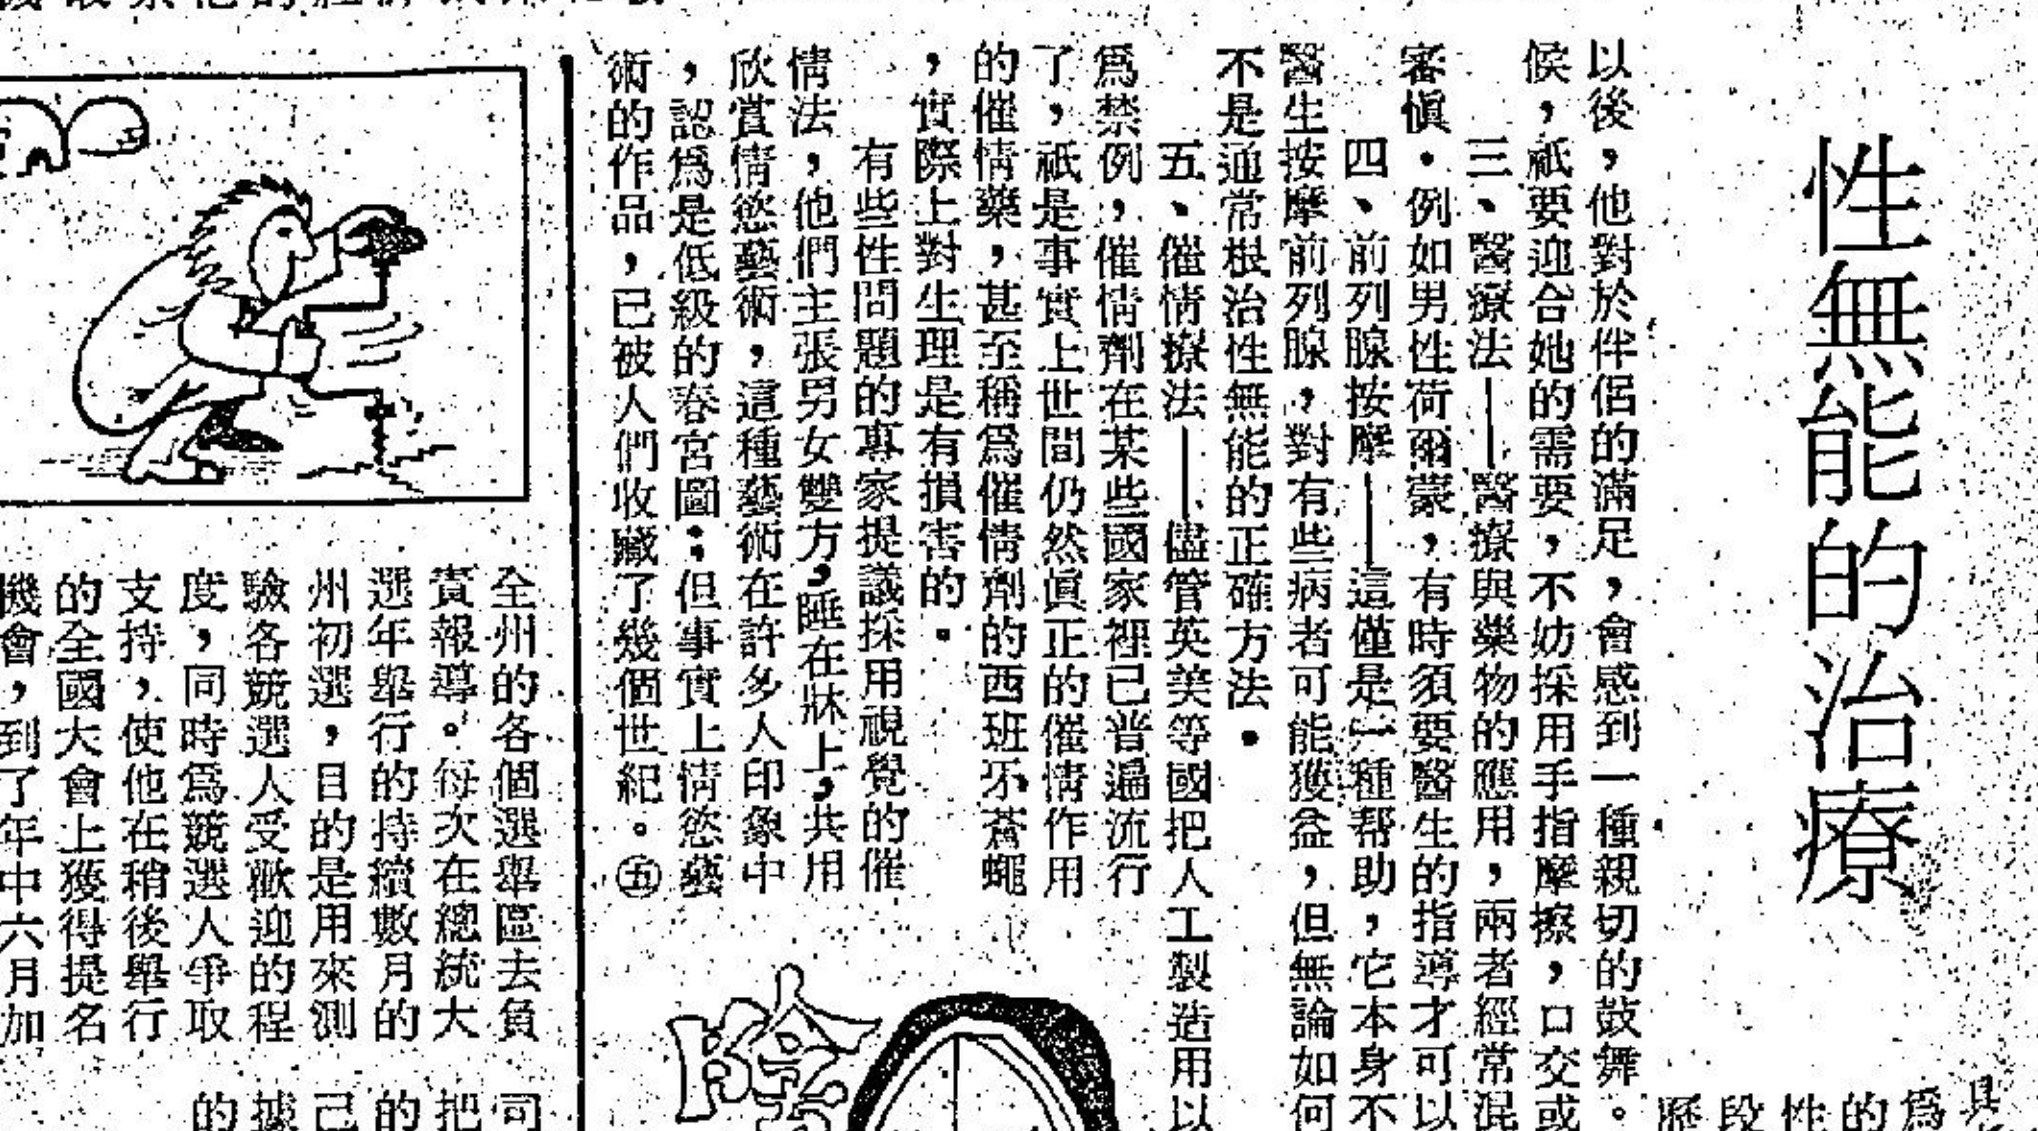 性無能的治療
以後，他對於伴侶的滿足，會感到一種親切的鼓舞。
候，祇要迎合她的需要，不妨採用手指摩擦，口交或
三、醫療法——醫療與藥物的應用，兩者經常混
審慎。例如男性荷爾蒙，有時須要醫生的指導才可以
四、前列腺按摩——這僅是一種帮助，它本身不
醫生按摩前列腺，對有些病者可能獲益，但無論如何
不是通常根治性無能的正確方法。
五、催情療法——儘管英美等國把人工製造用以
爲禁例，催情劑在某些國家裡已普遍流行
了，祇是事實上世間仍然眞正的催情作用
的催情藥，甚至稱爲催情劑的西班牙蒼蠅
，實際上對生理是有損害的。
有些性問題的專家提議採用視覺的催
情法，他們主張男女雙方，睡在牀上，共用
欣賞情慾藝術，這種藝術在許多人印象中
，認爲是低級的春宮圖；但事實上情慾藝
術的作品，已被人們收藏了幾個世紀。㊄
爲
的
性
段
歷
全州的各個選舉區去負
責報導。每次在總統大
選年舉行的持續數月的
州初選，目的是用來測
驗各競選人受歡迎的程
度，同時爲競選人爭取
支持，使他在稍後舉行
的全國大會上獲得提名
機會，到了年中六月加
司
把
的
己
據
的